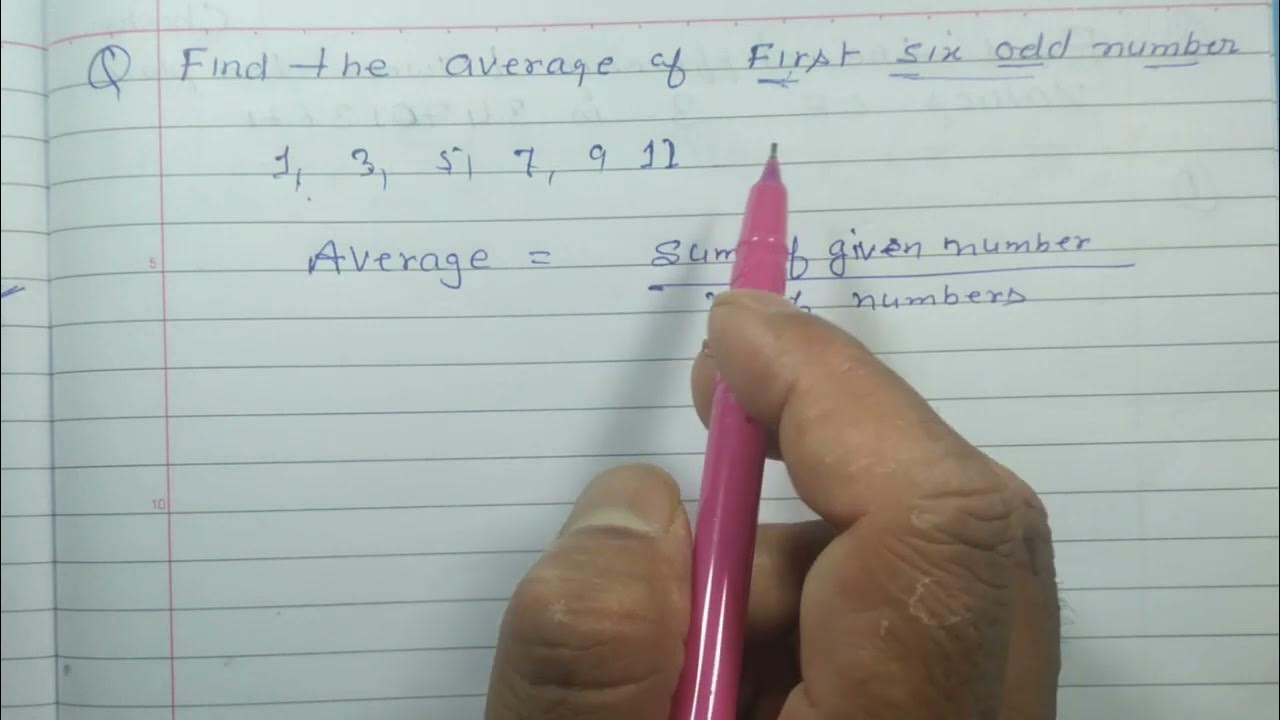 Q Find the average of First six odd number
1, 3, 5, 7, 9 11
Average = Sum given number
numbers
5
10